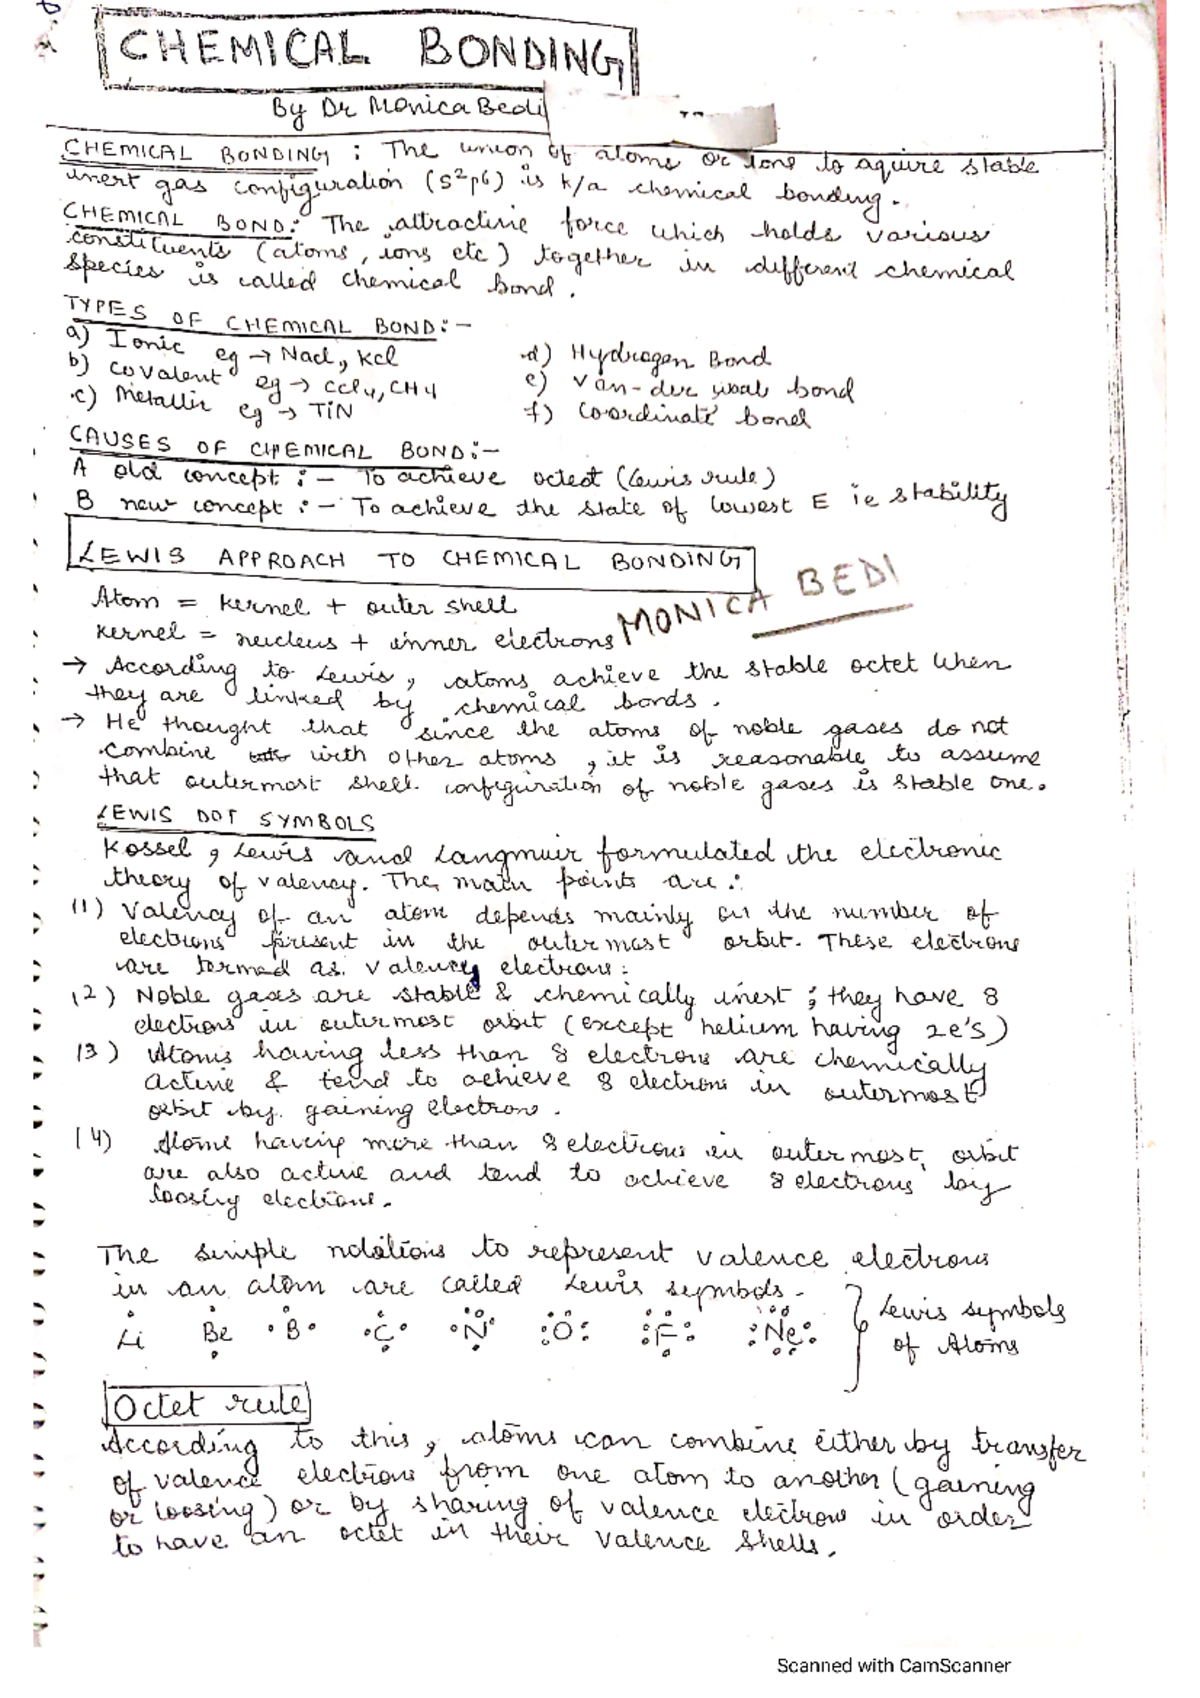 CHEMICAL BONDING
By Dr Monica Bedi
CHEMICAL BONDING : The union of atoms or ions to aquire stable
inert gas configuration (s²p6) is k/a chemical bonding.
CHEMICAL BOND: The attractive force which holds various
constituents (atoms, ions etc) together in different chemical
species is called chemical bond.
TYPES OF CHEMICAL BOND:-
a) Ionic eg → Nacl, Kcl
b) covalent eg → ccl4, CH4
c) Metallic eg → TiN
d) Hydrogen Bond
e) Van-der waal bond
f) Co-ordinate bond
CAUSES OF CHEMICAL BOND:-
A old concept :- To achieve octect (lewis rule)
B new concept :- To achieve the state of lowest E ie stability
LEWIS APPROACH TO CHEMICAL BONDING
MONICA BEDI
Atom = Kernel + outer shell
Kernel = nucleus + inner electrons
→ According to Lewis, atoms achieve the stable octet when
they are linked by chemical bonds.
→ He thought that since the atoms of noble gases do not
combine with other atoms, it is reasonable to assume
that outermost shell configuration of noble gases is stable one.
LEWIS DOT SYMBOLS
Kossel, Lewis and Langmuir formulated the electronic
theory of valency. The main points are :
(1) Valency of an atom depends mainly on the number of
electrons present in the outermost orbit. These electrons
are termed as valency electrons:
(2) Noble gases are stable & chemically inert ; they have 8
electrons in outermost orbit (except helium having 2e's)
(3) Atoms having less than 8 electrons are chemically
active & tend to achieve 8 electrons in outermost
orbit by gaining electron.
(4) Atoms having more than 8 electrons in outermost orbit
are also active and tend to achieve 8 electrons by
loosing electrons.
The simple notations to represent valence electrons
in an atom are called Lewis symbols.
Li Be B C N O F Ne Lewis symbols
of Atoms
Octet rule
According to this, atoms can combine either by transfer
of valence electrons from one atom to another (gaining
or loosing) or by sharing of valence electrons in order
to have an octet in their valence shells.
Scanned with CamScanner